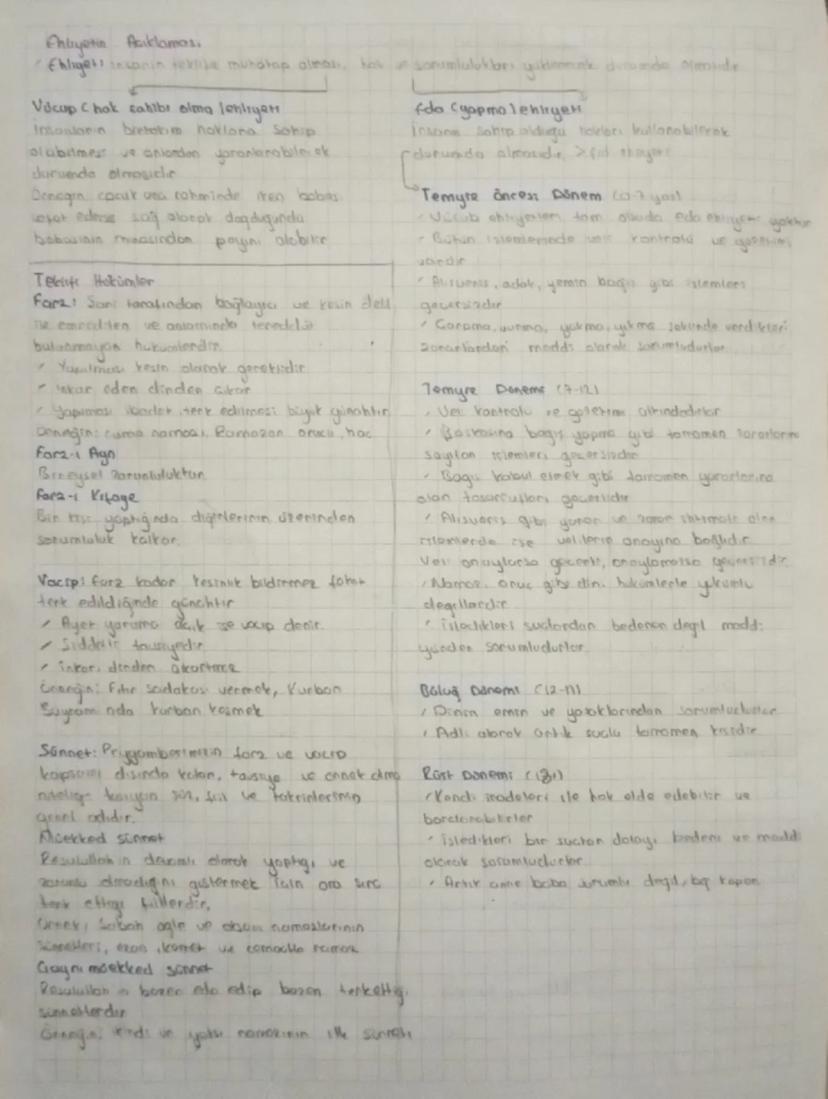 Ehliyetin Açıklaması
Ehliyet: insanın teklife muhatap olması, hak ve sorumlulukları yüklenmek durumda olmasıdır
Vücup (hak sahibi olma) ehliyeti
İnsanların birtakım haklara sahip
olabilmesi ve onlardan yararlanabilecek
durumda olmasıdır
Örneğin çocuk ana rahminde iken babası
vefat ederse sağ olarak doğduğunda
babasının mirasından payını alabilir
Teklifi Hükümler
Farz: Şari tarafından bağlayıcı ve kesin delil
ile emredilen ve anlamında tereddüt
bulunmayan hükümlerdir.
Yapılması kesin olarak gereklidir
inkar eden dinden çıkar
Yapılması ibadet terk edilmesi büyük günahtır
Örneğin: cuma namazı, Ramazan orucu, hac
Farz-ı Ayn
Bireysel zorunluluktur
Farz-ı Kifaye
Bir kişi yaptığında diğerlerinin üzerinden
sorumluluk kalkar.
Vacip: Farz kadar kesinlik bildirmez fakat
terk edildiğinde günahtır
Ayet yoruma açık ise vacip denir.
Şiddetli tavsiyedir
inkarı dinden çıkartmaz
Örneğin: Fıtır sadakası vermek, Kurban
Bayramı nda kurban kesmek
Sünnet: Peygamberimizin farz ve vacip
kapsamı dışında kalan, tavsiye ve örnek olma
niteliği taşıyan söz, fiil ve takrirlerinin
genel adıdır.
Müekked sünnet
Resulullah ın devamlı olarak yaptığı ve
zorunlu olmadığını göstermek için ara sıra
terk ettiği fiillerdir.
Örnek: Sabah öğle ve akşam namazlarının
sünnetleri, ezan, kamet ve cemaatle namaz
Gayrı müekked sünnet
Resulullah ın bazen eda edip bazen terkettiği
sünnetlerdir
Örneğin: ikindi ve yatsı namazının ilk sünneti
Eda (yapma) ehliyeti
İnsanın sahip olduğu hakları kullanabilecek
durumda olmasıdır. > fiil ehliyeti
Temyiz Öncesi Dönem (0-7 yaş)
Vücub ehliyetleri tam olsada eda ehliyeti yoktur
Bütün işlemlerinde veli kontrolü ve gözetimi
vardır
Alışveriş, adak, yemin bağış gibi işlemleri
geçersizdir
Çarpma, vurma, yakma, yıkma şeklinde verdikleri
zararlardan maddi olarak sorumludurlar
Temyiz Dönemi (7-12)
Veli kontrolü ve gözetimi altındadırlar
Başkasına bağış yapma gibi tamamen zararlarına
sayılan işlemleri geçersizdir
Bağış kabul etmek gibi tamamen yararlarına
olan tasarrufları geçerlidir
Alışveriş gibi yarar ve zarar ihtimali olan
işlemlerde ise velilerin onayına bağlıdır.
Veli onaylarsa geçerli, onaylamazsa geçersizdir
Namaz, oruç gibi dini hükümlerle yükümlü
değillerdir.
işledikleri suçlardan bedenen değil maddi
yönden sorumludurlar.
Büluğ Dönemi (12-17)
Dinin emir ve yasaklarından sorumludurlar
Adli olarak artık suçlu tamamen kişidir
Rüşt Dönemi (18+)
Kendi iradeleri ile hak elde edebilir ve
borçlanabilirler
işledikleri bir suçtan dolayı bedeni ve maddi
olarak sorumludurlar.
Artık anne baba sorumlu değil,